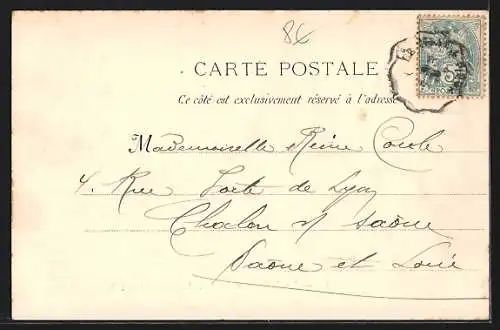 86
CARTE POSTALE
Ce côté est exclusivement réservé à l'adresse
Mademoiselle Reine
4. Rue Porte de Lyon
Chalon s/ Saône
Saône et Loire